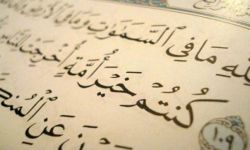 لِلَّهِ مَا فِي السَّمَٰوَٰتِ وَمَا فِي
١٠٩ كُنْتُمْ خَيْرَ أُمَّةٍ أُخْرِجَتْ
عَنِ الْمُنْكَ